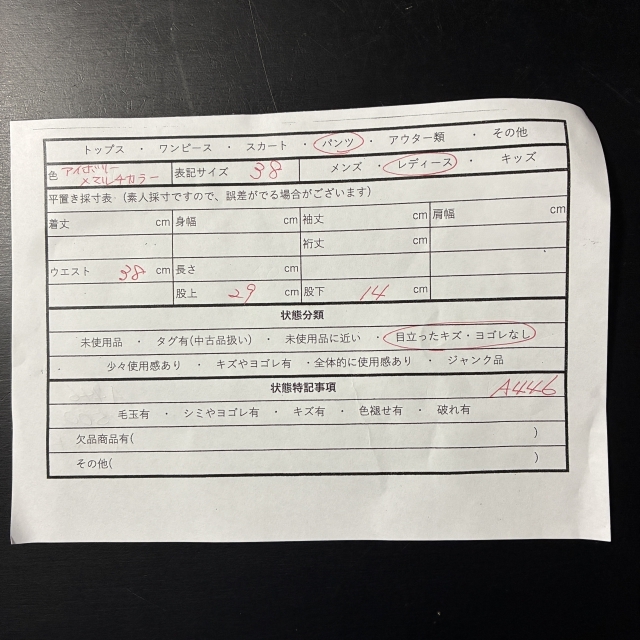 トップス ・ ワンピース ・ スカート ・ パンツ ・ アウター類 ・ その他
色 アイボリー×マルチカラー 表記サイズ 38 メンズ ・ レディース ・ キッズ
平置き採寸表 (素人採寸ですので、誤差がでる場合がございます)
着丈 cm 身幅 cm 袖丈 cm 肩幅 cm
裄丈 cm
ウエスト 38 cm 長さ cm
股上 29 cm 股下 14 cm
状態分類
未使用品 ・ タグ有(中古品扱い) ・ 未使用品に近い ・ 目立ったキズ・ヨゴレなし
・ 少々使用感あり ・ キズやヨゴレ有 ・全体的に使用感あり ・ ジャンク品
状態特記事項 A446
毛玉有 ・ シミやヨゴレ有 ・ キズ有 ・ 色褪せ有 ・ 破れ有
欠品商品有( )
その他( )